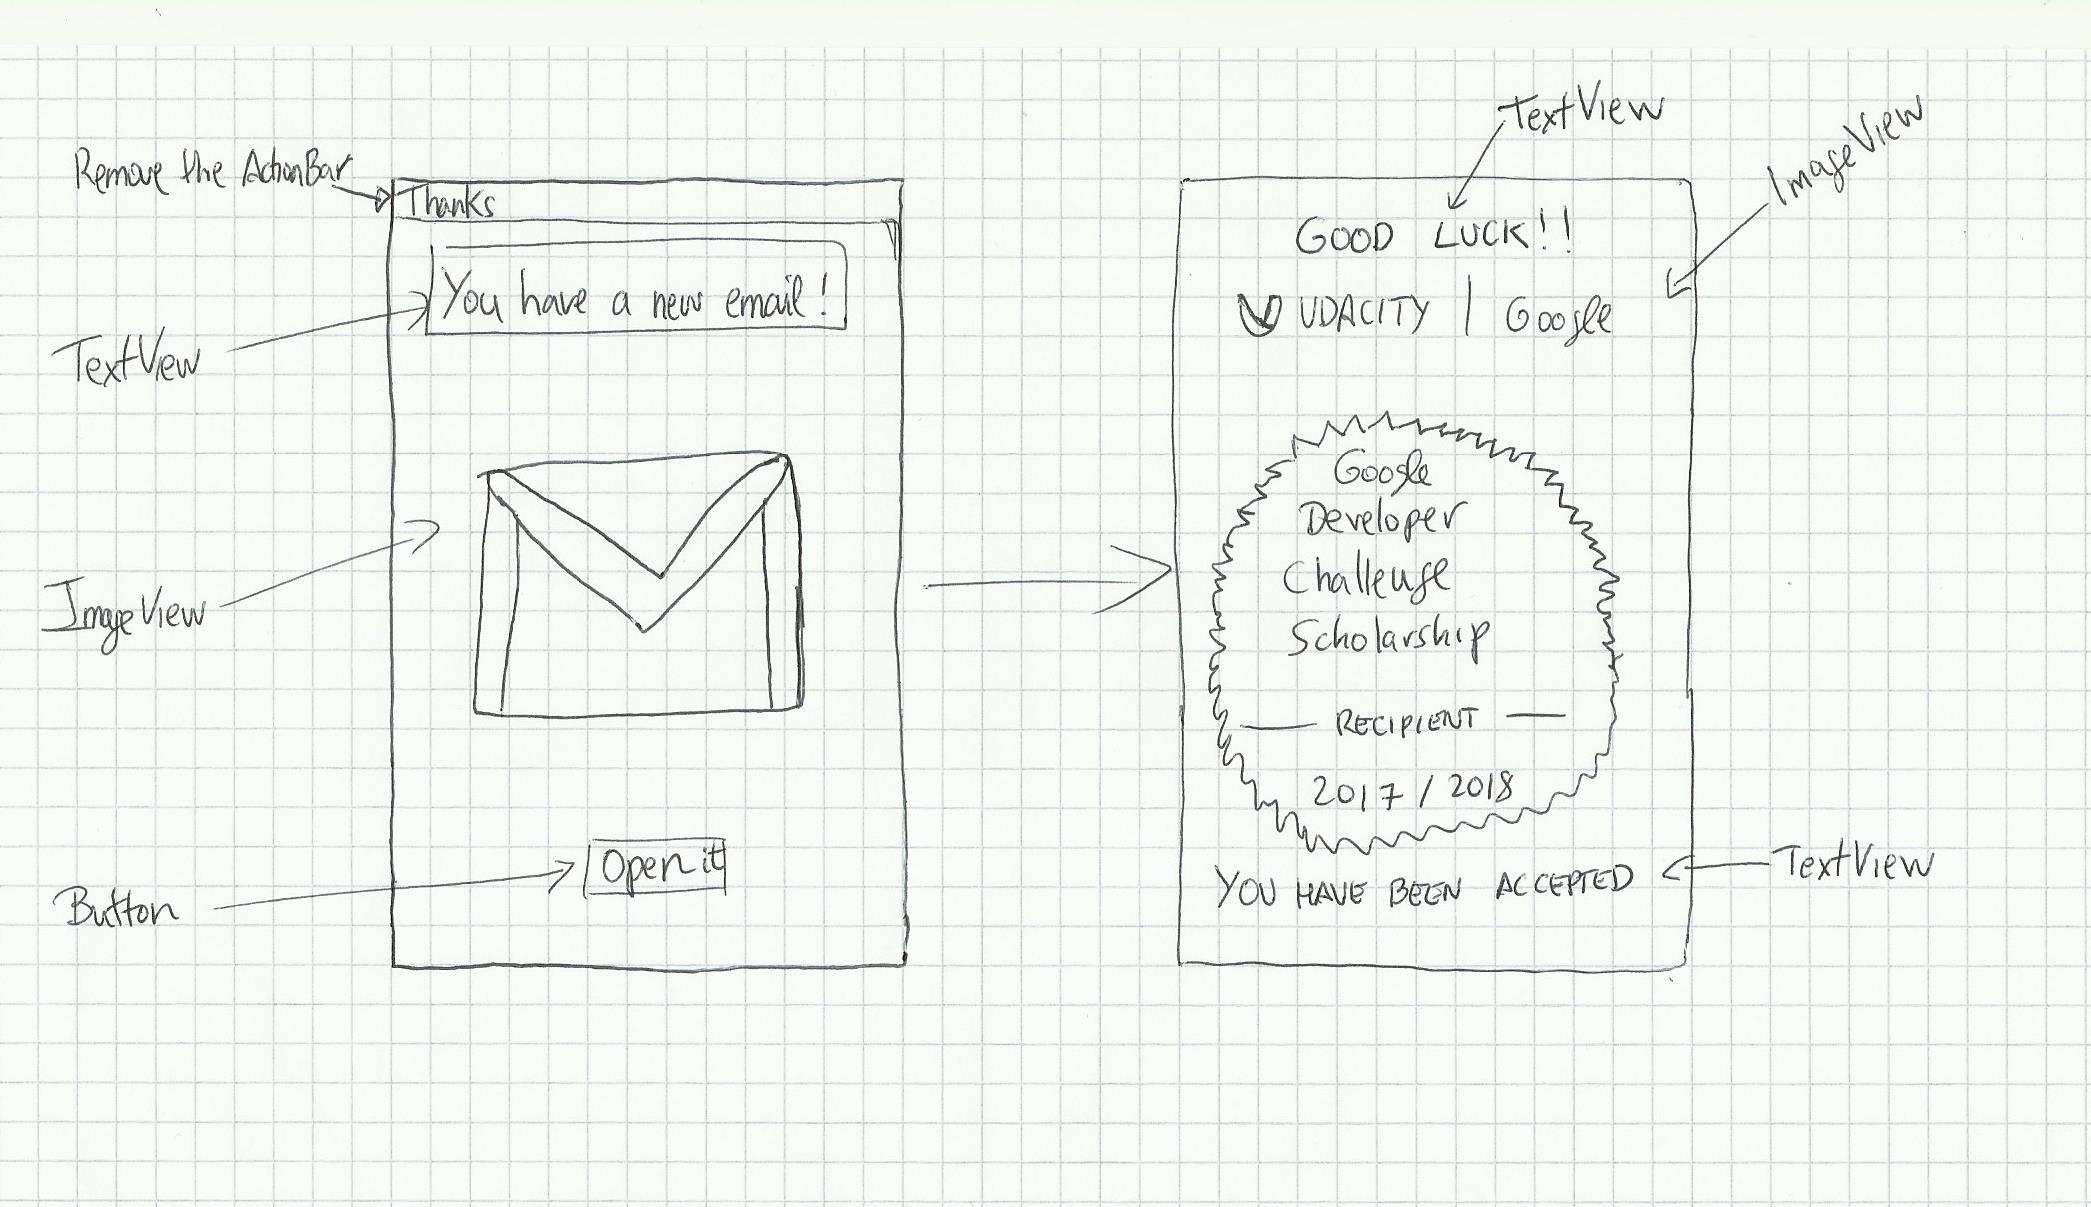 Remove the ActionBar
Thanks
You have a new email!
TextView
ImageView
Open it
Button
TextView
ImageView
GOOD LUCK!!
UDACITY | Google
Google
Developer
Challenge
Scholarship
— RECIPIENT —
2017 / 2018
YOU HAVE BEEN ACCEPTED
TextView